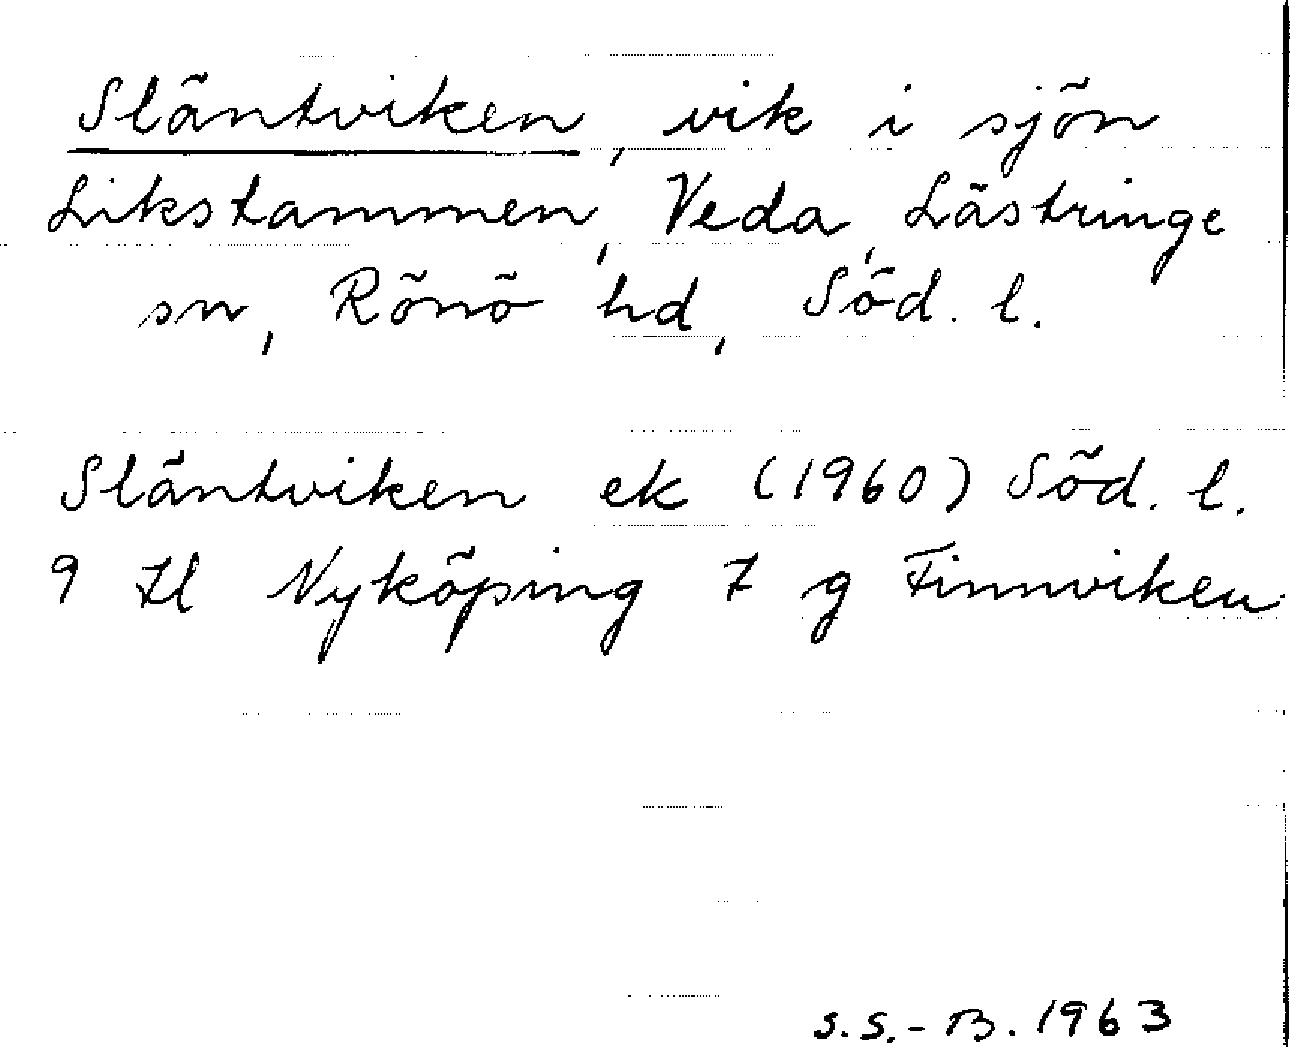 Släntviken, vik i sjön
Likstammen, Veda, Lästringe
sn, Rönö hd, Söd. l.
Släntviken ek (1960) Söd. l.
9 Hl Nyköping 7 g Finnviken
S.S.-B. 1963